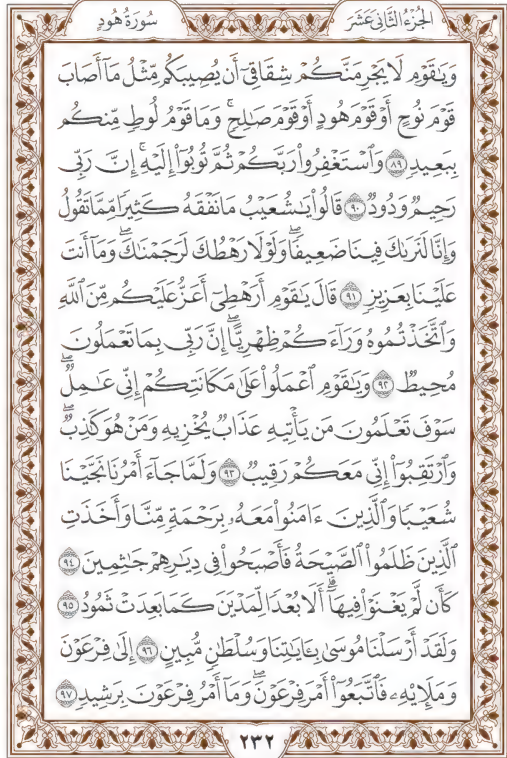 الجُزْءُ الثَّانِي عَشَرَ سُورَةُ هُودٍ
وَيَٰقَوْمِ لَا يَجْرِمَنَّكُمْ شِقَاقِيٓ أَن يُصِيبَكُم مِّثْلُ مَآ أَصَابَ
قَوْمَ نُوحٍ أَوْ قَوْمَ هُودٍ أَوْ قَوْمَ صَٰلِحٍۚ وَمَا قَوْمُ لُوطٍ مِّنكُم
بِبَعِيدٍ ٨٩ وَٱسْتَغْفِرُوا۟ رَبَّكُمْ ثُمَّ تُوبُوٓا۟ إِلَيْهِۚ إِنَّ رَبِّى
رَحِيمٌ وَدُودٌ ٩٠ قَالُوا۟ يَٰشُعَيْبُ مَا نَفْقَهُ كَثِيرًا مِّمَّا تَقُولُ
وَإِنَّا لَنَرَىٰكَ فِينَا ضَعِيفًاۖ وَلَوْلَا رَهْطُكَ لَرَجَمْنَٰكَۖ وَمَآ أَنتَ
عَلَيْنَا بِعَزِيزٍ ٩١ قَالَ يَٰقَوْمِ أَرَهْطِىٓ أَعَزُّ عَلَيْكُم مِّنَ ٱللَّهِ
وَٱتَّخَذْتُمُوهُ وَرَآءَكُمْ ظِهْرِيًّاۖ إِنَّ رَبِّى بِمَا تَعْمَلُونَ
مُحِيطٌ ٩٢ وَيَٰقَوْمِ ٱعْمَلُوا۟ عَلَىٰ مَكَانَتِكُمْ إِنِّى عَٰمِلٌۖ
سَوْفَ تَعْلَمُونَ مَن يَأْتِيهِ عَذَابٌ يُخْزِيهِ وَمَنْ هُوَ كَٰذِبٌۖ
وَٱرْتَقِبُوٓا۟ إِنِّى مَعَكُمْ رَقِيبٌ ٩٣ وَلَمَّا جَآءَ أَمْرُنَا نَجَّيْنَا
شُعَيْبًا وَٱلَّذِينَ ءَامَنُوا۟ مَعَهُۥ بِرَحْمَةٍ مِّنَّا وَأَخَذَتِ
ٱلَّذِينَ ظَلَمُوا۟ ٱلصَّيْحَةُ فَأَصْبَحُوا۟ فِى دِيَٰرِهِمْ جَٰثِمِينَ ٩٤
كَأَن لَّمْ يَغْنَوْا۟ فِيهَآۗ أَلَا بُعْدًا لِّمَدْيَنَ كَمَا بَعِدَتْ ثَمُودُ ٩٥
وَلَقَدْ أَرْسَلْنَا مُوسَىٰ بِـَٔايَٰتِنَا وَسُلْطَٰنٍ مُّبِينٍ ٩٦ إِلَىٰ فِرْعَوْنَ
وَمَلَإِيْهِۦ فَٱتَّبَعُوٓا۟ أَمْرَ فِرْعَوْنَۖ وَمَآ أَمْرُ فِرْعَوْنَ بِرَشِيدٍ ٩٧
٢٣٢